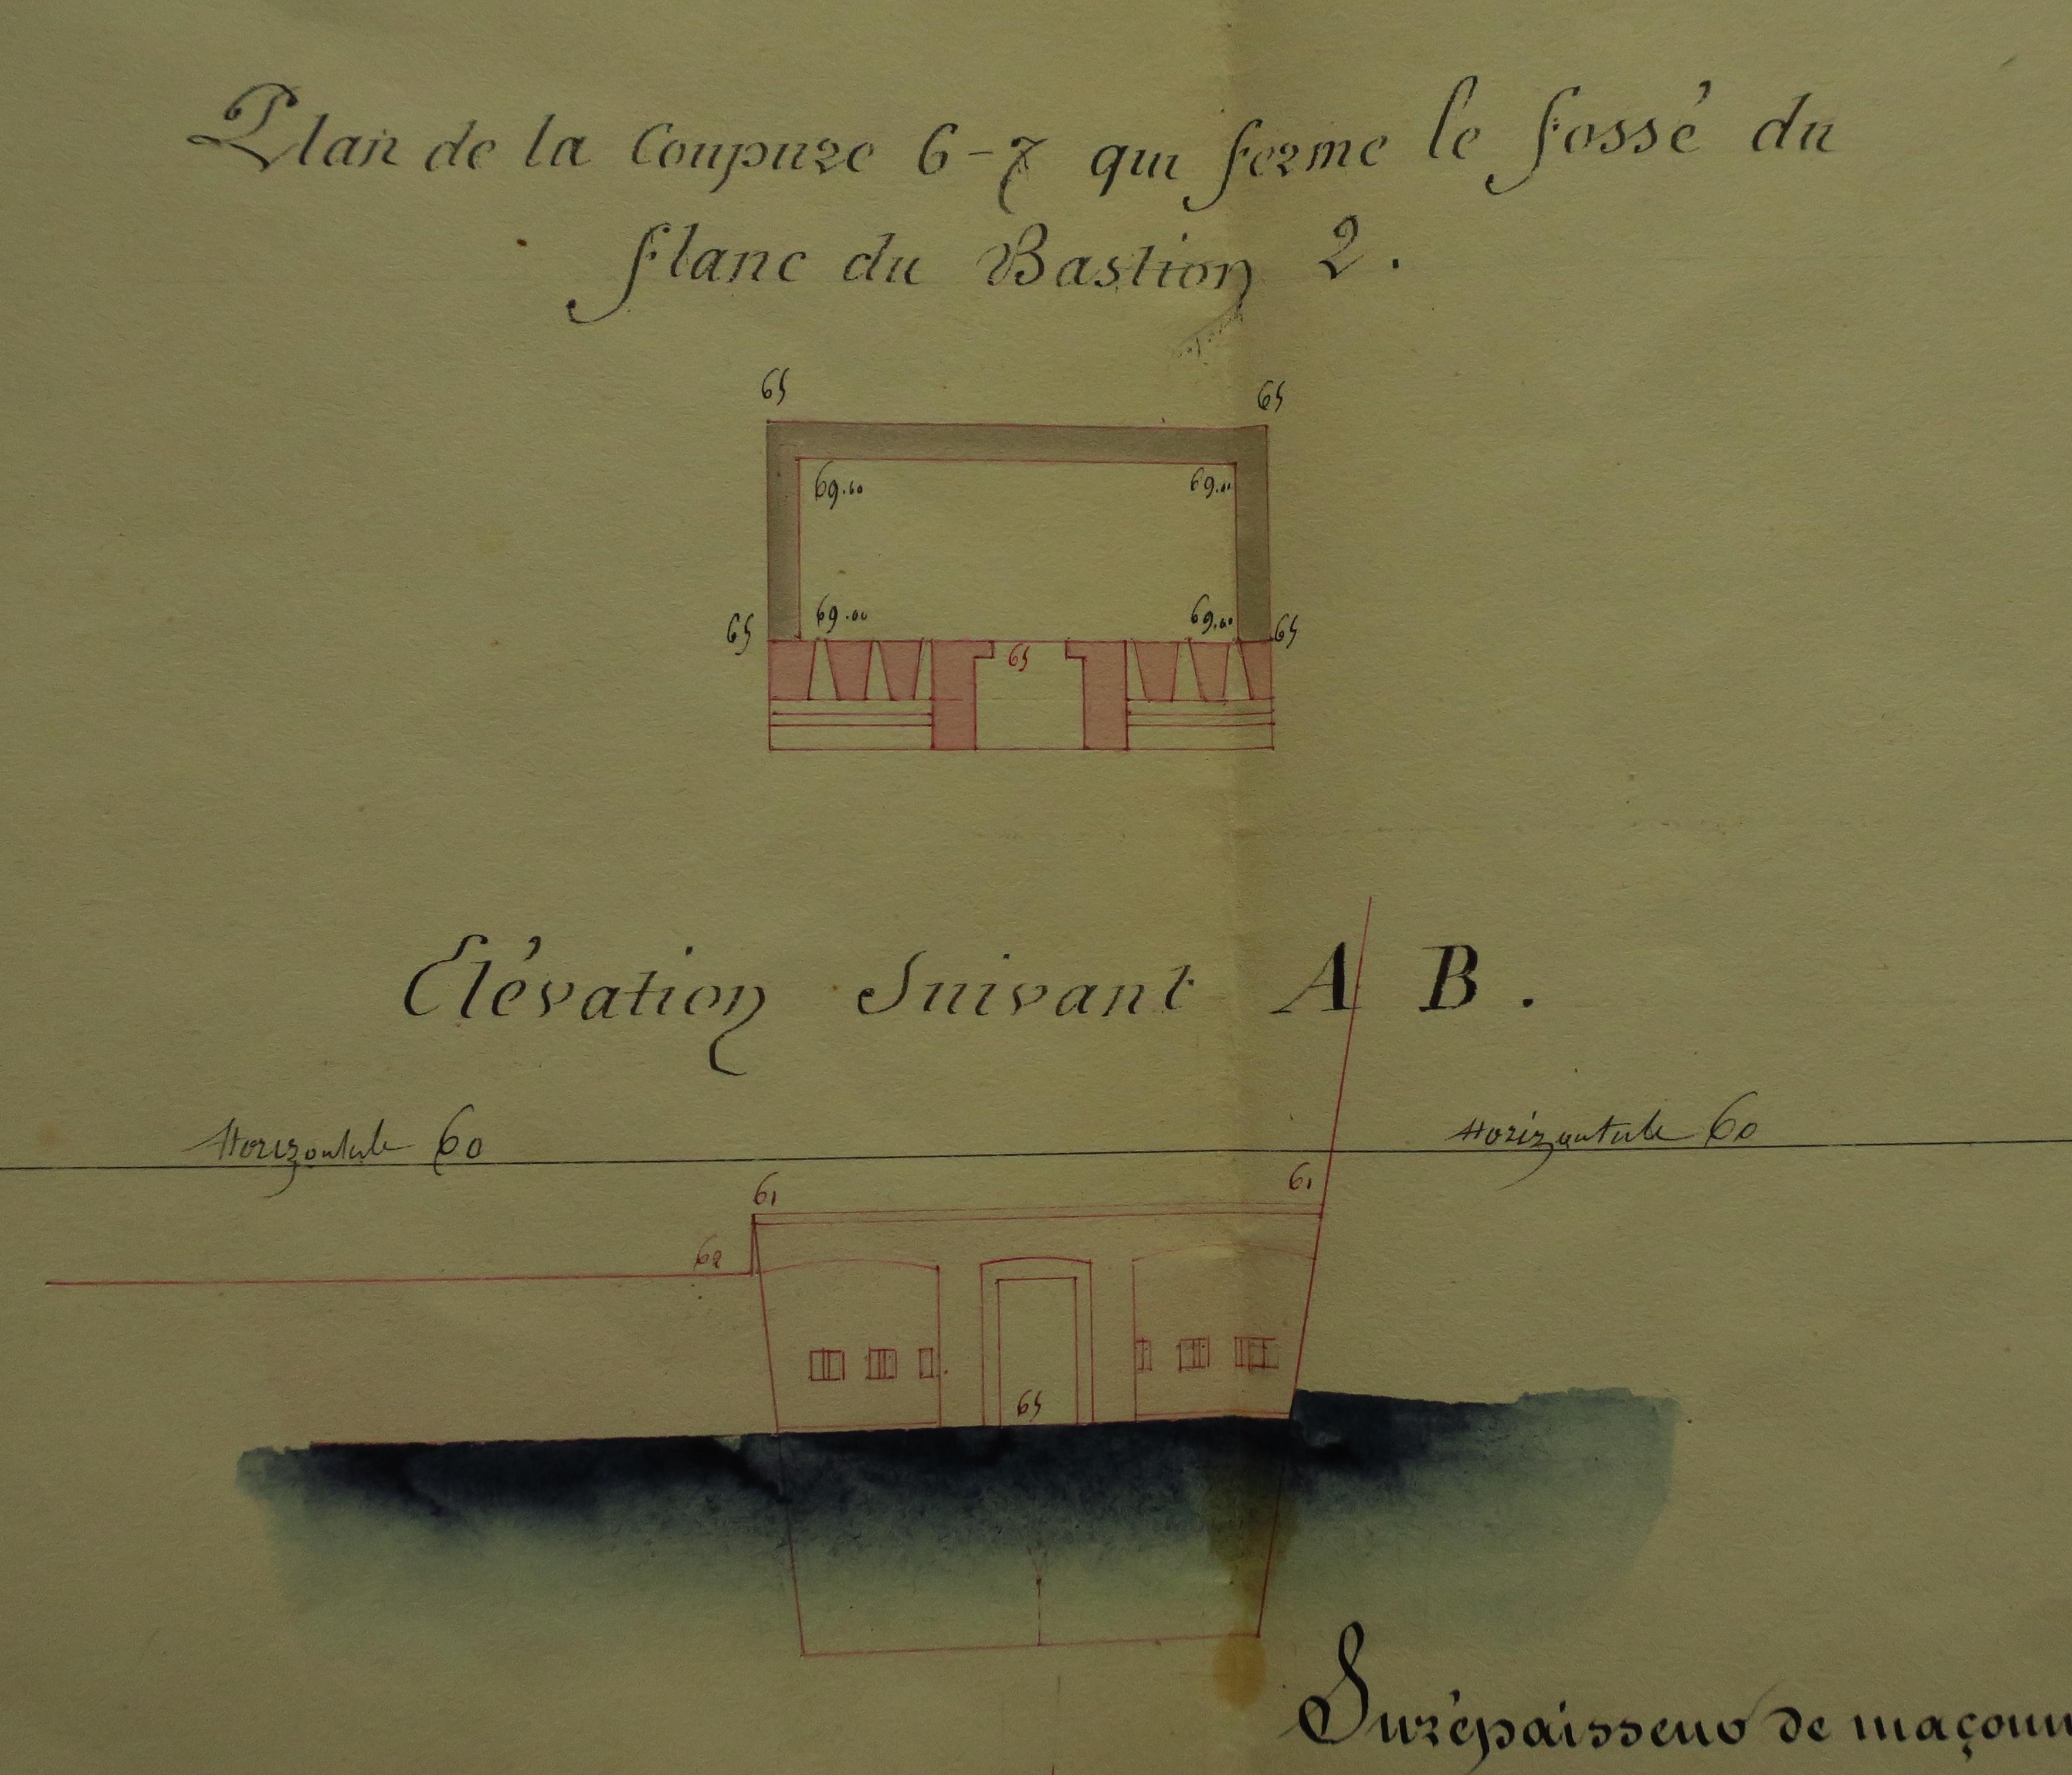 Plan de la Coupure 6-7 qui ferme le fossé du
flanc du Bastion 2.
65 65
69.00 69.00
69.00 69.00
65 65
65
Elévation Suivant A B.
Horizontale 60 Horizontale 60
61 61
62
65
Surépaisseur de maçonn